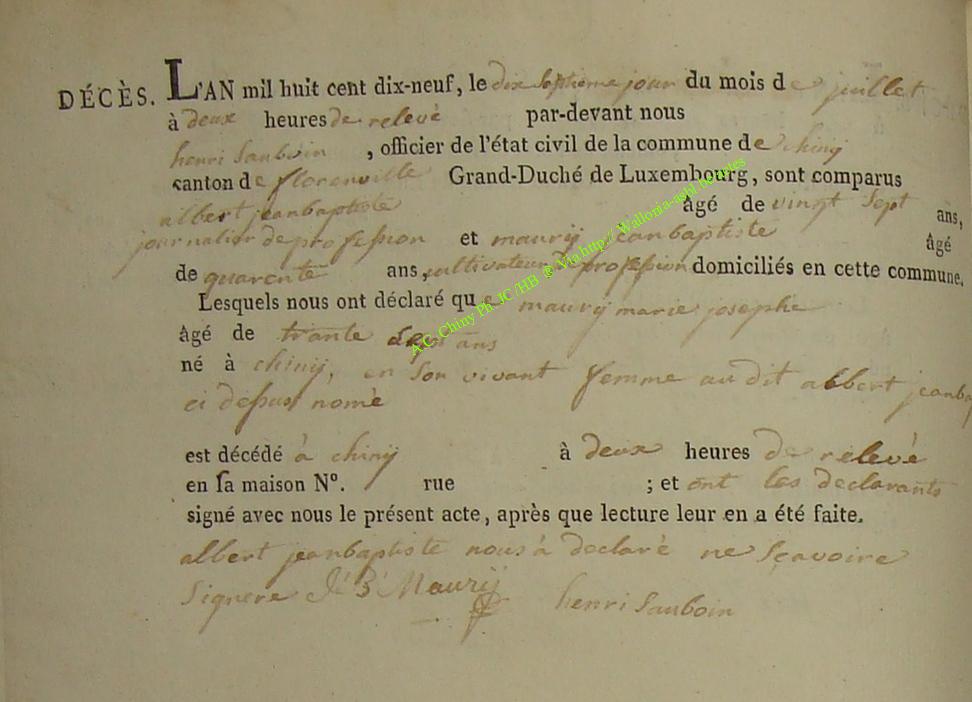 DÉCÈS. L'AN mil huit cent dix-neuf, le dix septheme jour du mois de juillet
à deux heures de relevé par-devant nous
henri Sauboin , officier de l'état civil de la commune de chinij
canton de florenville Grand-Duché de Luxembourg, sont comparus
albert jeanbaptiste âgé de vingt sept ans,
journalier de profession et maurij jeanbaptiste âgé
de quarente ans, cultivateur de profession domiciliés en cette commune.
Lesquels nous ont déclaré que maurij marie josephe
âgé de trante sept ans
né à chinij, en son vivant femme au dit albert jeanba
ci depus nomé
est décédé à chinij à deux heures de relevé
en sa maison N°. rue ; et ont les declarants
signé avec nous le présent acte, après que lecture leur en a été faite.
albert jeanbaptiste nous à declaré ne sçavoire
signere J B Maurij henri Sauboin
A.C. Chiny Ph. JC /HB @ Via http:// Wallonia-asbl.be/notes